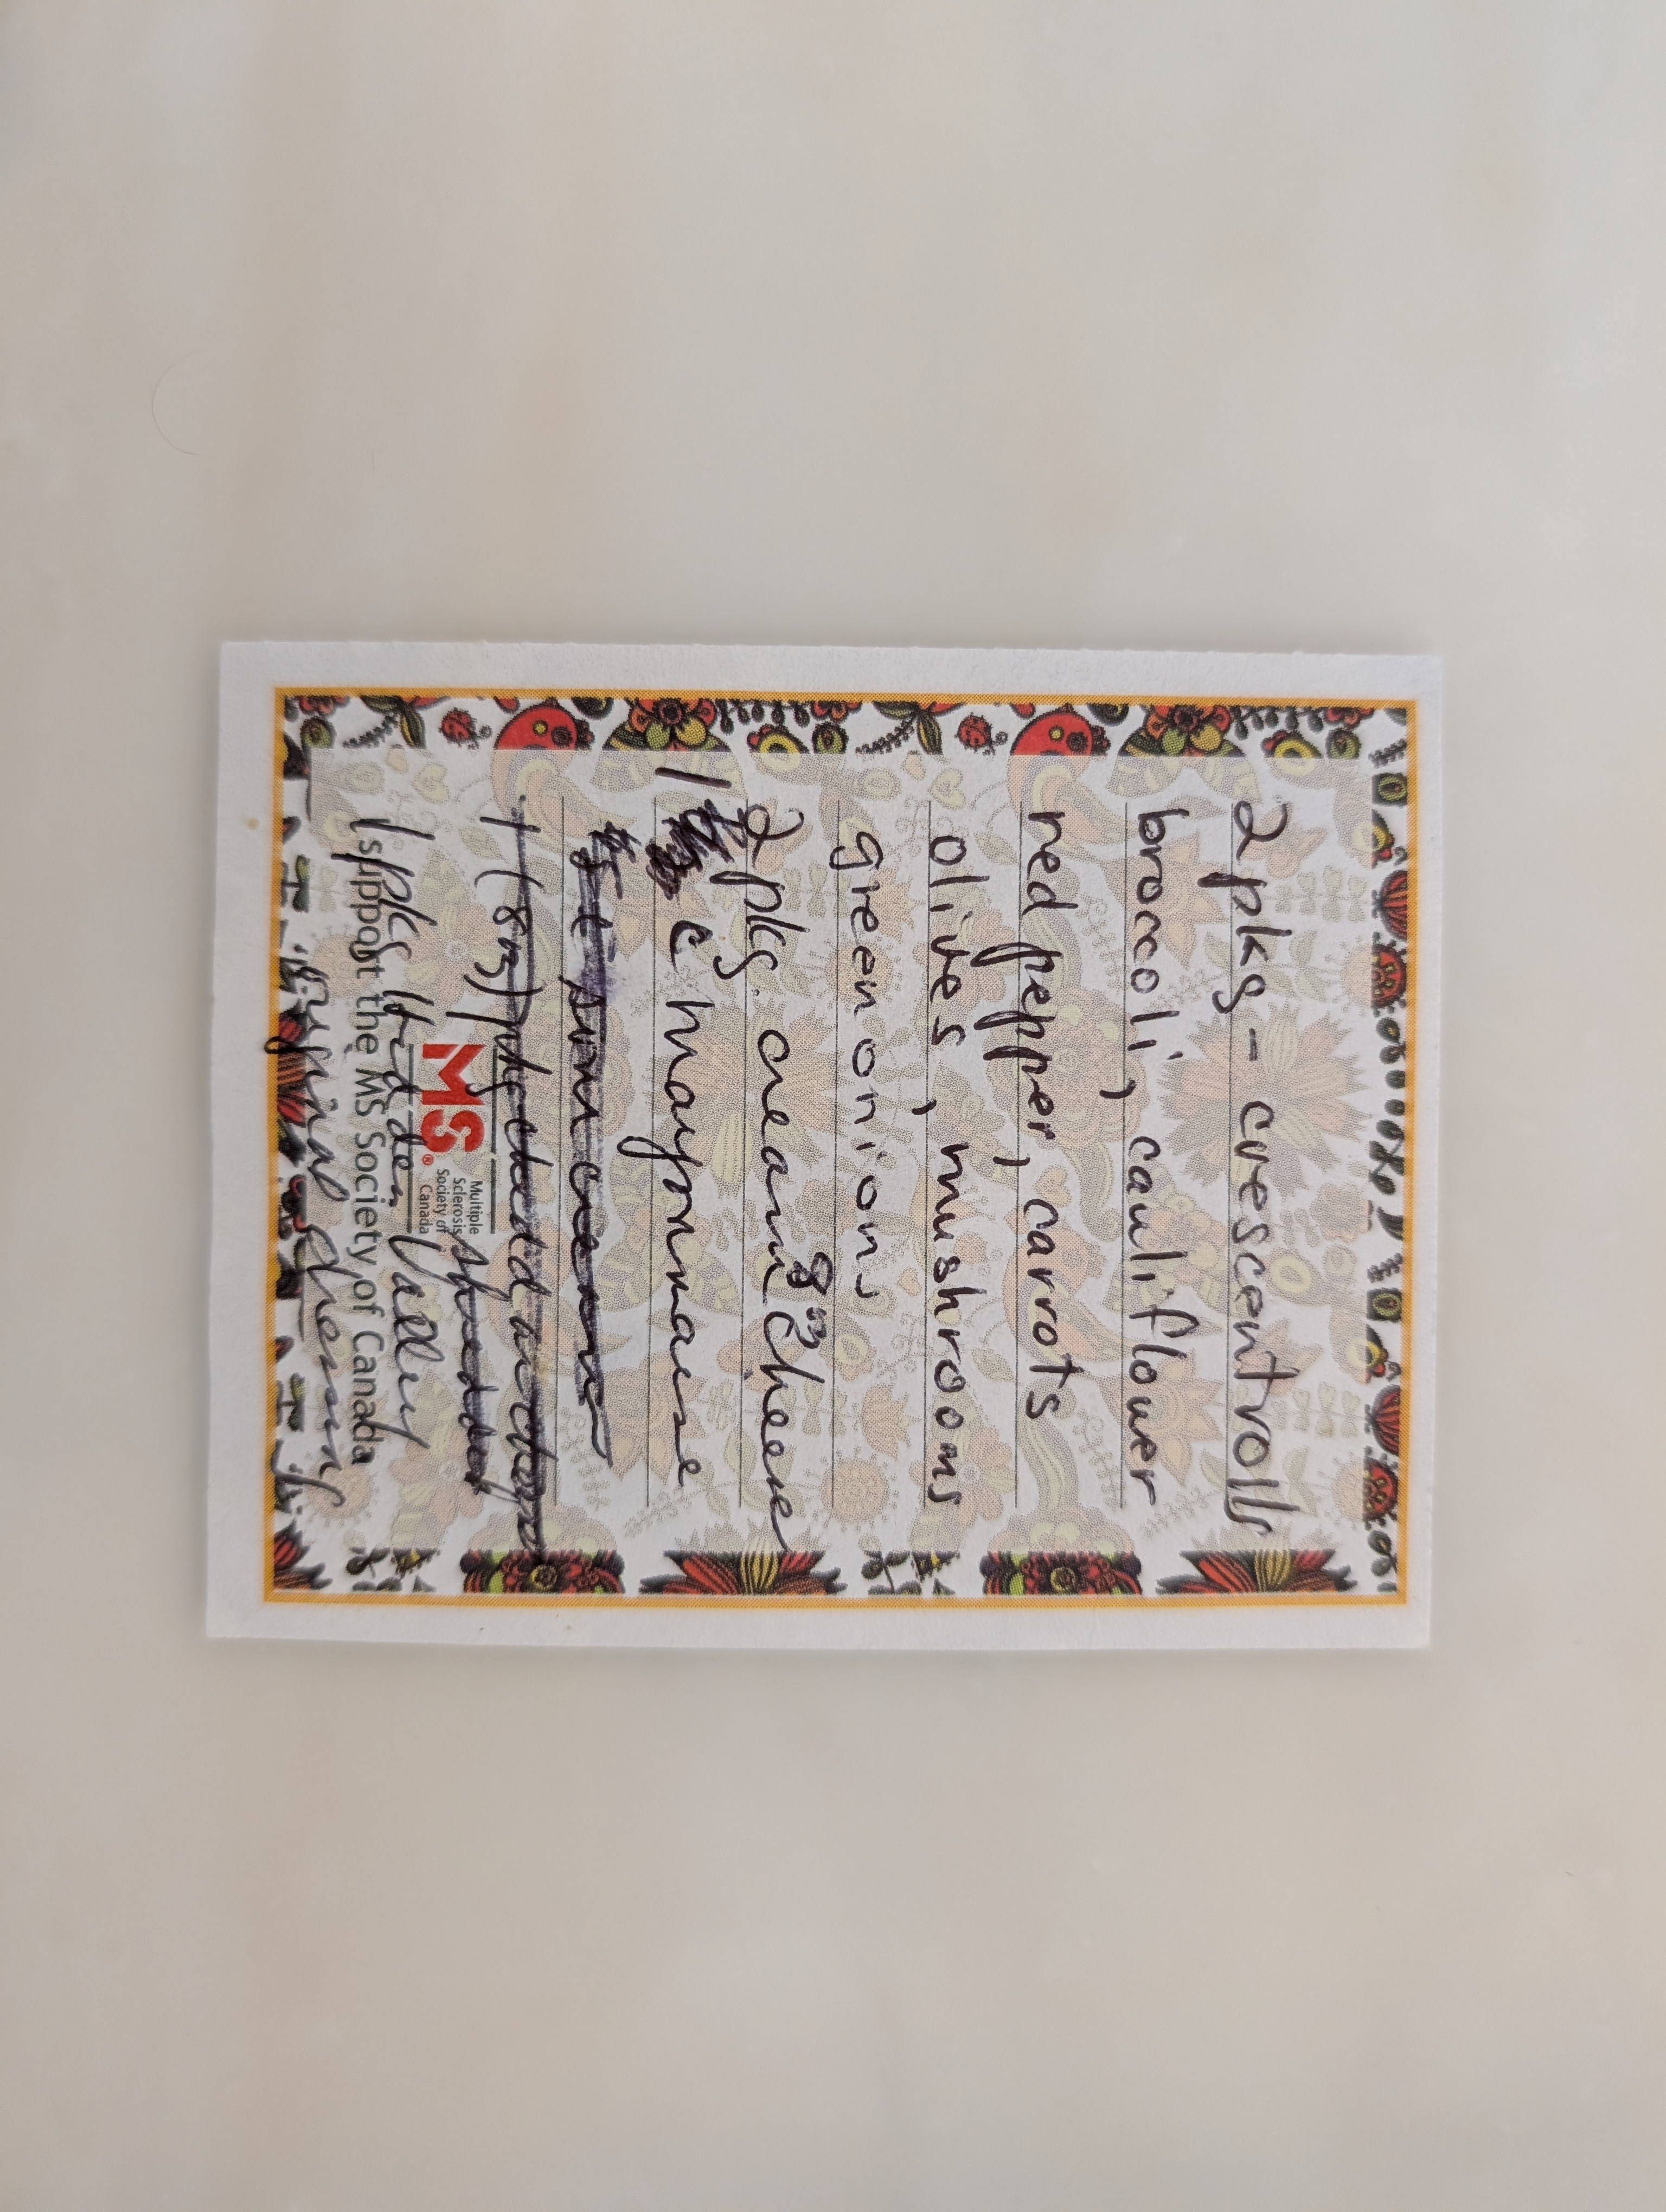 2 pks - crescentrolls
brocco li, cauliflower
red pepper, carrots
olives, mushrooms
green onions
2 pks. cream cheese
8 oz
1 c mayonnaise
.5 c sour cream
1 (8 oz) pkg chedd
shredded
1 pkg Hidden Valley
original dressing
MS
Multiple
Sclerosis
Society of
Canada
I support the MS Society of Canada